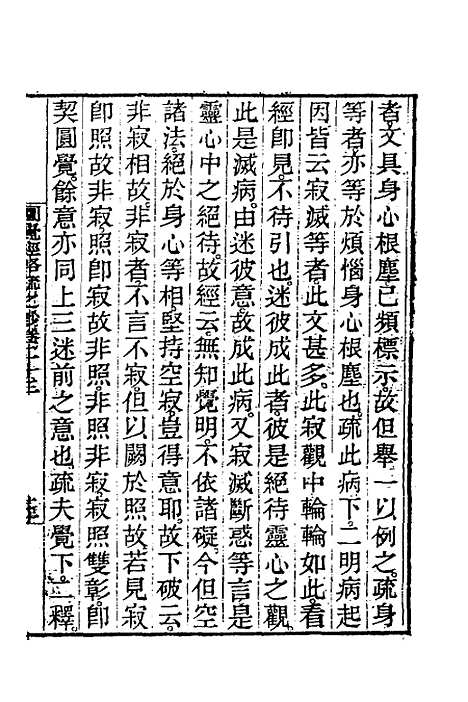 者文具身心根塵已頻標示故但舉一以例之疏身
等者亦等於煩惱身心根塵也疏此病下二明病起
因皆云寂滅等者此文甚多此寂觀中輪輪如此看
經卽見不待引也迷彼成此者彼是絕待靈心之觀
此是滅病由迷彼意故成此病又寂滅斷惑等言是
靈心中之絕待故經云無知覺明不依諸礙今但空
諸法絕於身心等相堅持空寂豈得意耶故下破云
非寂相故非寂者不言不寂但以闕於照故若見寂
卽照故非寂照卽寂故非照非照非寂寂照雙彰卽
契圓覺餘意亦同上三迷前之意也疏夫覺下二釋
圓覺經略疏之鈔卷二十三